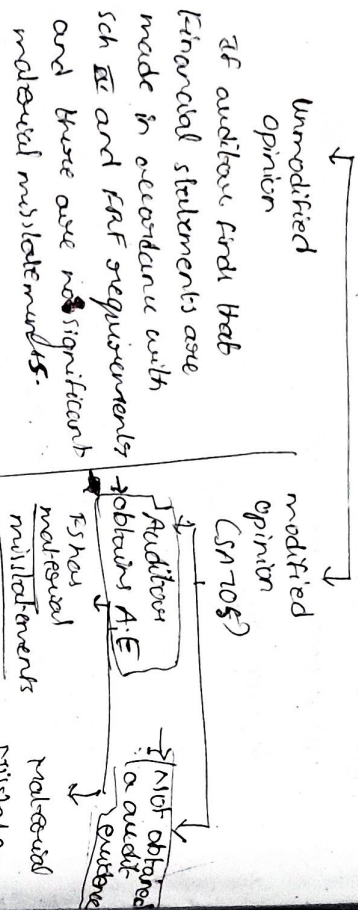 Unmodified
opinion
If auditor finds that
Financial statements are
made in accordance with
Sch III and FRF requirements
and there are no significant
material misstatements.
modified
opinion
(SA-705)
Auditor
→ obtains A.E
FS has
material
misstatements
→ Not obtained
audit
evidence
Material